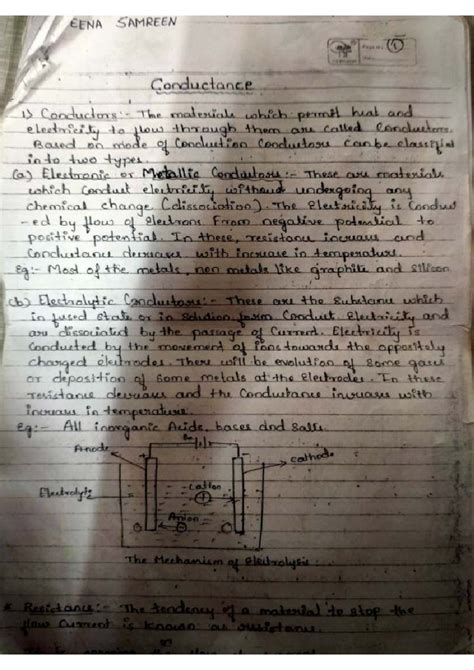 EENA SAMREEN
Page No. 1
Conductance
1) Conductors:- The materials which permit heat and
electricity to flow through them are called Conductors.
Based on mode of Conduction Conductors can be classified
in to two types.
(a) Electronic or Metallic Conductors:- These are materials
which conduct electricity without undergoing any
chemical change (dissociation). The Electricity is Conduct
-ed by flow of electrons From negative potential to
positive potential. In these, resistance increases and
Conductance decreases with increase in temperature.
Eg:- Most of the metals, non metals like graphite and silicon
(b) Electrolytic Conductors:- These are the Substance which
in fused state or in Solution form Conduct Electricity and
are dissociated by the passage of Current. Electricity is
Conducted by the movement of ions towards the oppositely
charged electrodes. There will be evolution of some gases
or deposition of some metals at the Electrodes. In these
resistance decreases and the Conductance increases with
increase in temperature.
Eg:- All inorganic Acids, bases and Salts.
Anode
Cathode
+
-
Electrolyte
Cation
+
Anion
-
The Mechanism of Electrolysis
* Resistance:- The tendency of a material to stop the
flow Current is known as resistance.